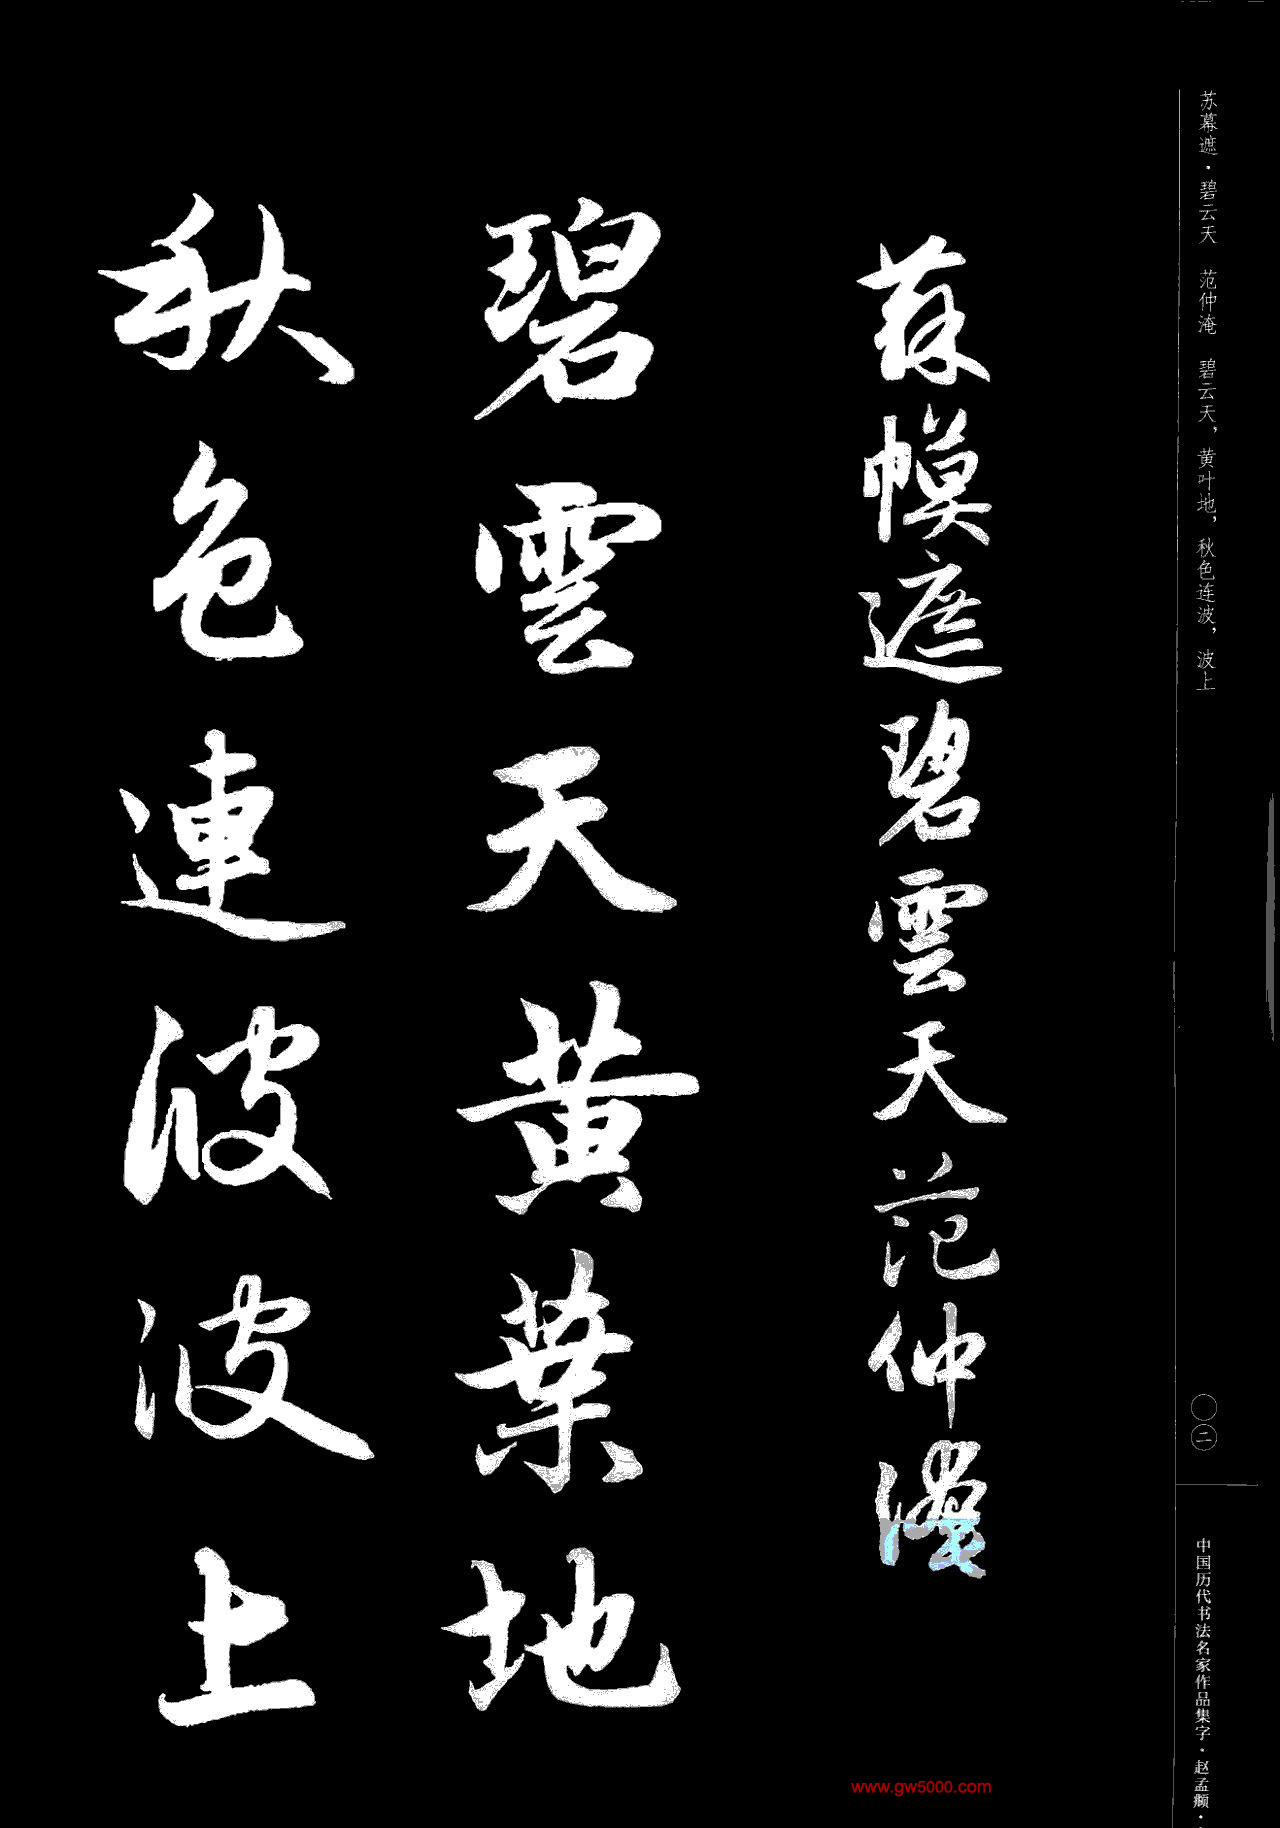 苏幕遮·碧云天　范仲淹　碧云天，黄叶地，秋色连波，波上
〇二
中国历代书法名家作品集字·赵孟頫·
蘇幙遮碧雲天范仲淹
碧雲天黃葉地
秋色連波波上
www.gw5000.com